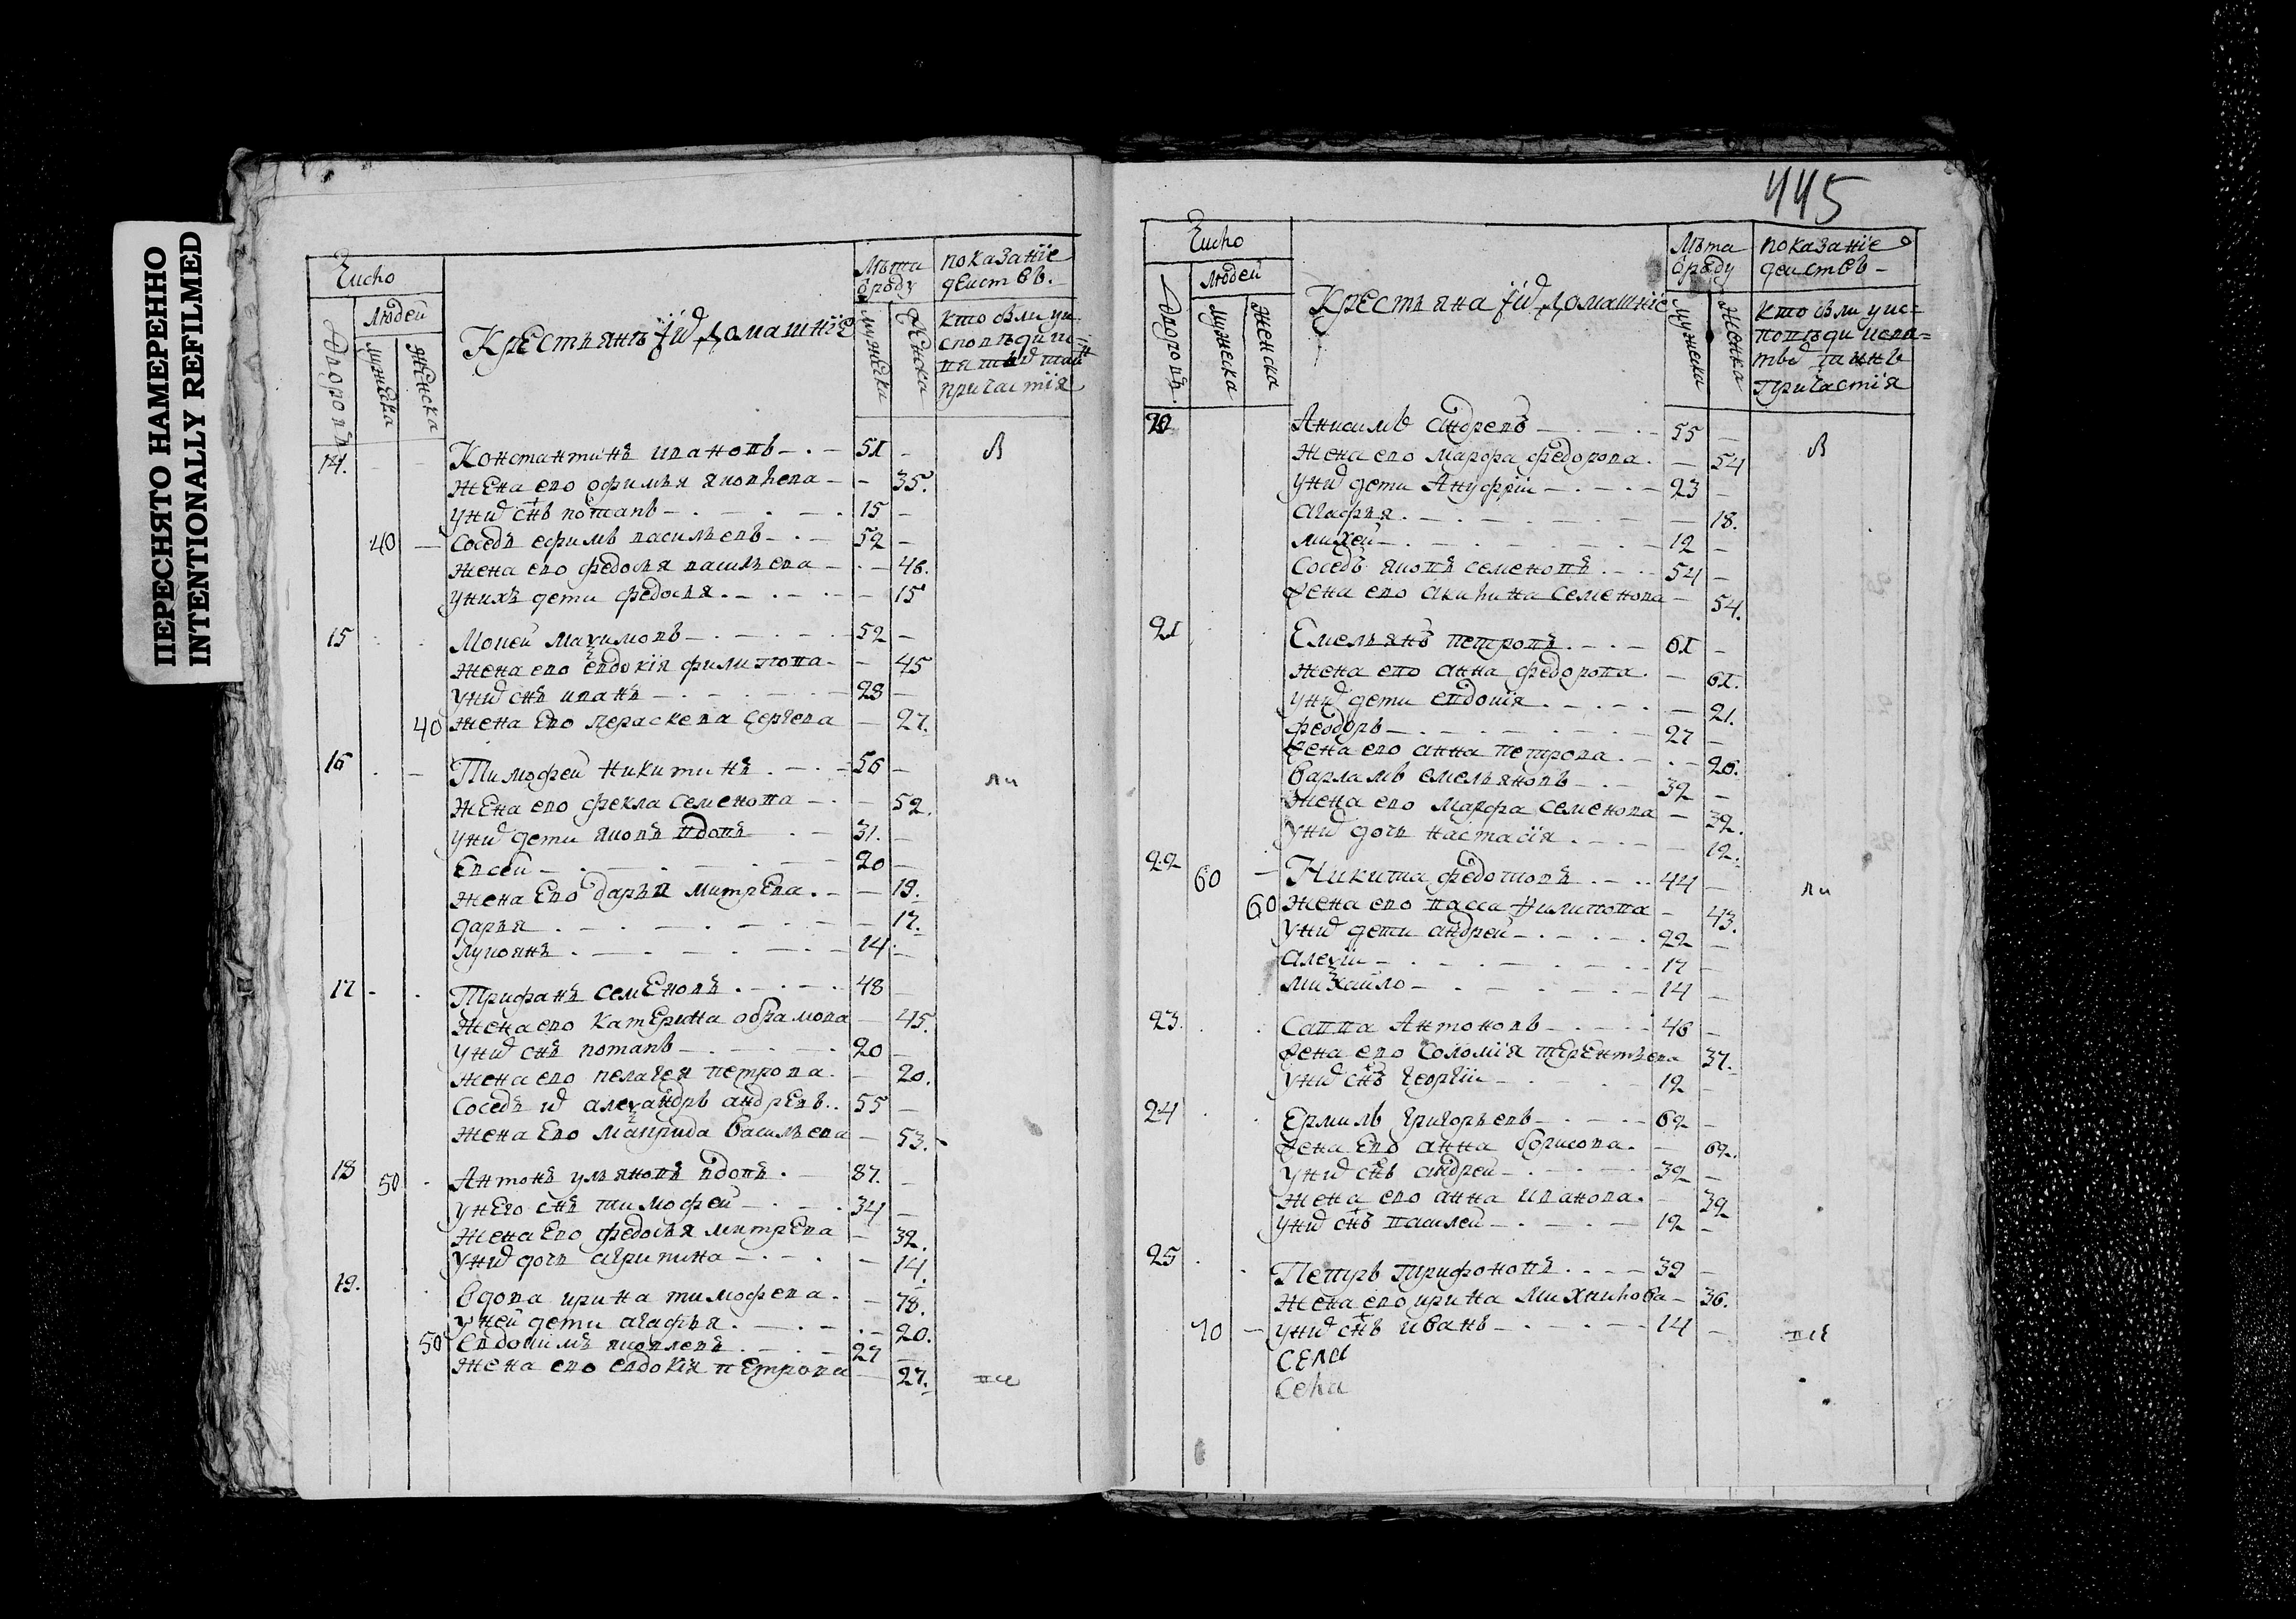 ПЕРЕСНЯТО НАМЕРЕННО
INTENTIONALLY REFILMED
Число
Людей
Дворовъ
мужеска
женска
Крестьянъ їихъ домашнїе
Лѣта
ѿроду
мужеска
женска
показанїе
действъ.
кто был у и
споведи и
святыхъ таинъ
причастїя
14. Константинъ ивановъ 51
жена ево офимья яковлева 35.
у нихъ снъ потапъ 15
40 соседъ ефимъ васильевъ 52
жена ево федосья васильева 46.
у нихъ дети федосья 15
15 Мокей маѯимовъ 52
жена ево евдокїя филипова 45
у нихъ снъ иванъ 28
40 жена ево пераскева сергева 27.
16 Тимофей никитинъ 56
жена ево фекла семенова 52.
у нихъ дети яковъ вдовъ 31.
евсей 20
жена ево дарья митрева 19.
дарья 17.
лукоянъ 14
17 Трифанъ семеновъ 48
жена ево катерина обрамова 45.
у нихъ снъ потапъ 20
жена ево пелагея петрова 20.
соседъ их алеѯандръ андревъ 55
жена ево маврида васильева 53.
18 50 Антонъ ульяновъ вдовъ 87.
у него снъ тимофей 34
жена ево федосья митрева 32.
у нихъ дочь агрипина 14.
19. вдова ирина тимофева 78.
у ней дети агафья 20.
50 евдокимъ яковлевъ 27
жена ево евдокїя петрова 27.
445
Число
Людей
Дворовъ
мужеска
женска
Крестьяна їихъ домашнїе
Лѣта
ѿроду
мужеска
женска
показанїе
действъ
кто были у ис=
поведи и свя=
тыхъ таинъ
причастїя
20 Анисимъ андревъ 55
жена ево марфа федорова 54
у нихъ дети Ануфрїи 23
агафья 18.
михей 12
соседъ яковъ семеновъ 54
жена ево акилина семенова 54.
21 Емельянъ петровъ 61
жена ево анна федорова 61.
у нихъ дети евдокїя 21.
феодоръ 27
жена ево анна петрова 26.
варламъ емельяновъ 32
жена ево марфа семенова 32.
у нихъ дочь настасїя 12.
22 60 Никита федотовъ 44
60 жена ево васса филипова 43.
у нихъ дети андрей 22
алеѯїи 17
михайло 14
23. Савва Антоновъ 46
жена ево соломїя терентьева 37.
у нихъ снъ георгїи 12
24 Ермилъ григорьевъ 62
жена ево анна борисова 62.
у нихъ снъ андрей 32
жена ево анна иванова 32
у нихъ снъ василей 12
25 Петръ трифоновъ 32
жена ево ирина михаилова 36.
70 у нихъ снъ иванъ 14
села
села